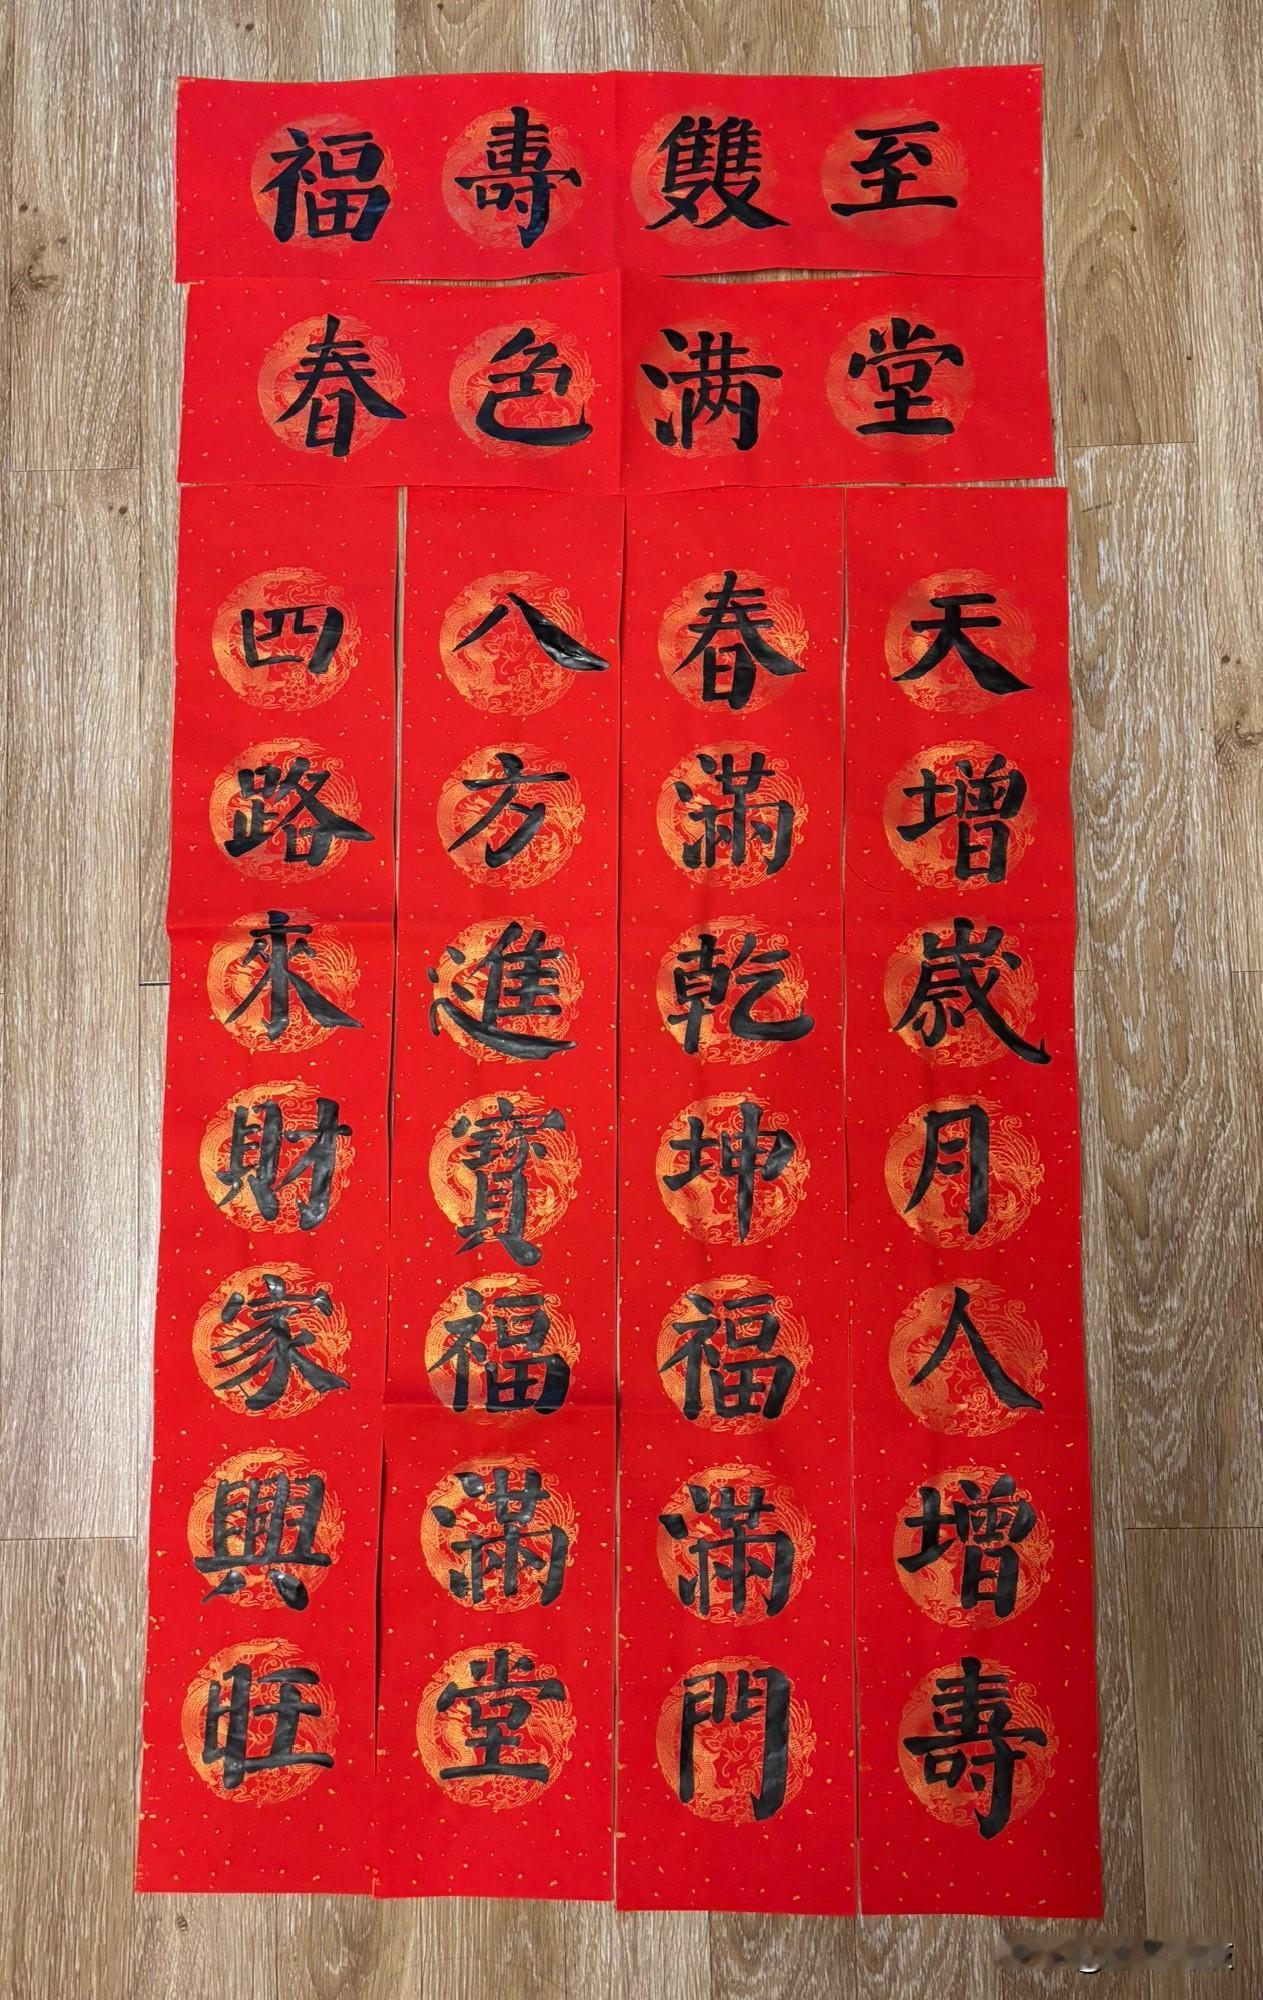 福壽雙至
春色满堂
天增嵗月人增壽
春滿乾坤福滿門
八方進寶福滿堂
四路來財家興旺